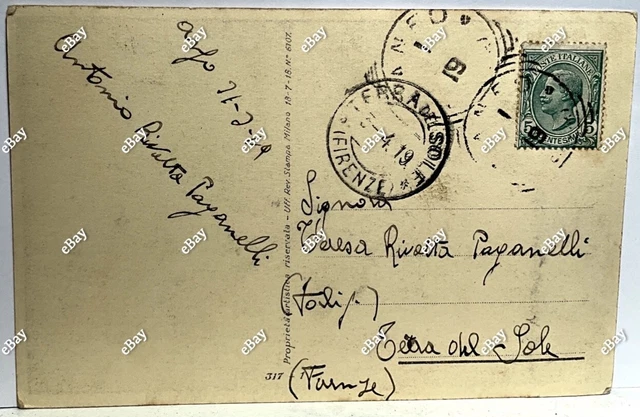 31-3-19
Antonio Rivalta Paganelli
Proprietà artistica riservata - Uff. Rev. Stampa Milano 18-7-18. N° 6107.
317
TERRA DEL SOLE
4.19
(FIRENZE)
POSTE ITALIANE
5 CENTESIMI 5
Signora
Teresa Rivalta Paganelli
(Forlì)
Terra del Sole
(Firenze)
eBay